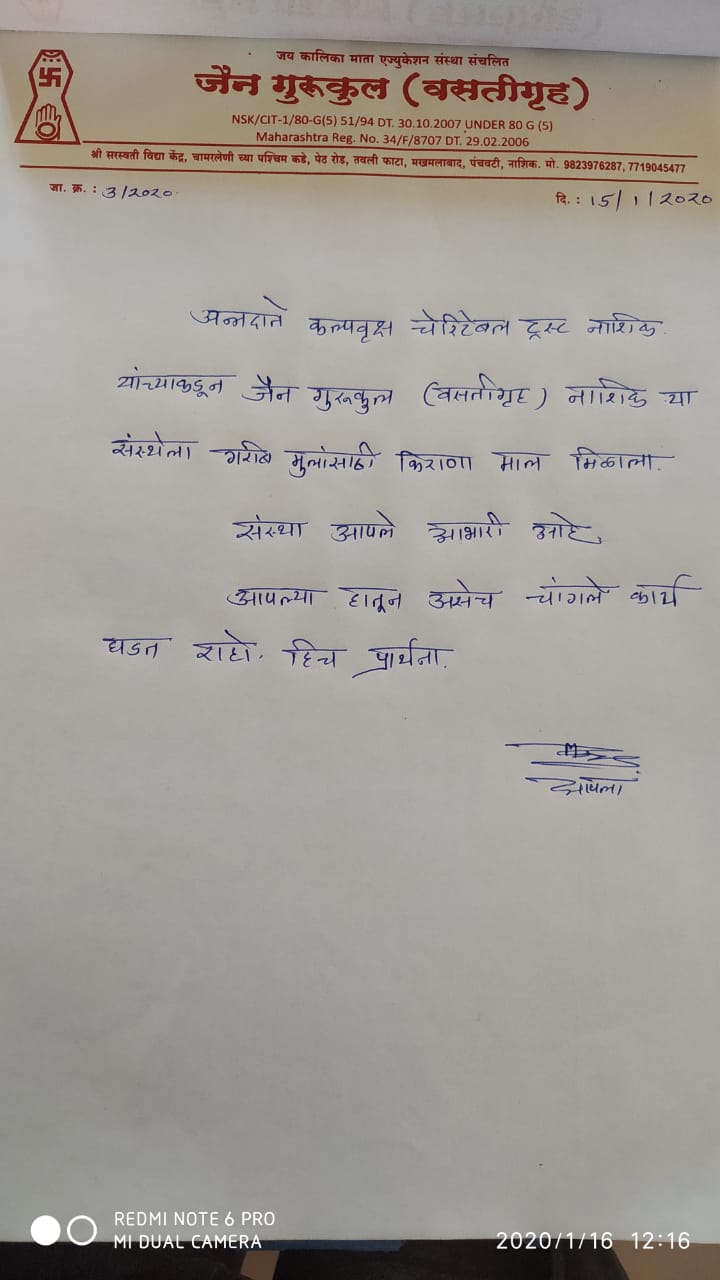 जय कालिका माता एज्युकेशन संस्था संचलित
जैन गुरूकुल (वसतीगृह)
NSK/CIT-1/80-G(5) 51/94 DT. 30.10.2007 UNDER 80 G (5)
Maharashtra Reg. No. 34/F/8707 DT. 29.02.2006
श्री सरस्वती विद्या केंद्र, चामरलेणी च्या पश्चिम कडे, पेठ रोड, तवली फाटा, मखमलाबाद, पंचवटी, नाशिक. मो. 9823976287, 7719045477
जा. क्र. : 3/2020. दि. : 15/1/2020
अन्नदाते कल्पवृक्ष चेरिटेबल ट्रस्ट नाशिक.
यांच्याकडून जैन गुरूकुल (वसतीगृह) नाशिक या
संस्थेला गरीब मुलांसाठी किराणा माल मिळाला.
संस्था आपले आभारी आहे.
आपल्या हातून असेच चांगले कार्य
घडत राहो. हिच प्रार्थना.
आपला
REDMI NOTE 6 PRO
MI DUAL CAMERA
2020/1/16 12:16